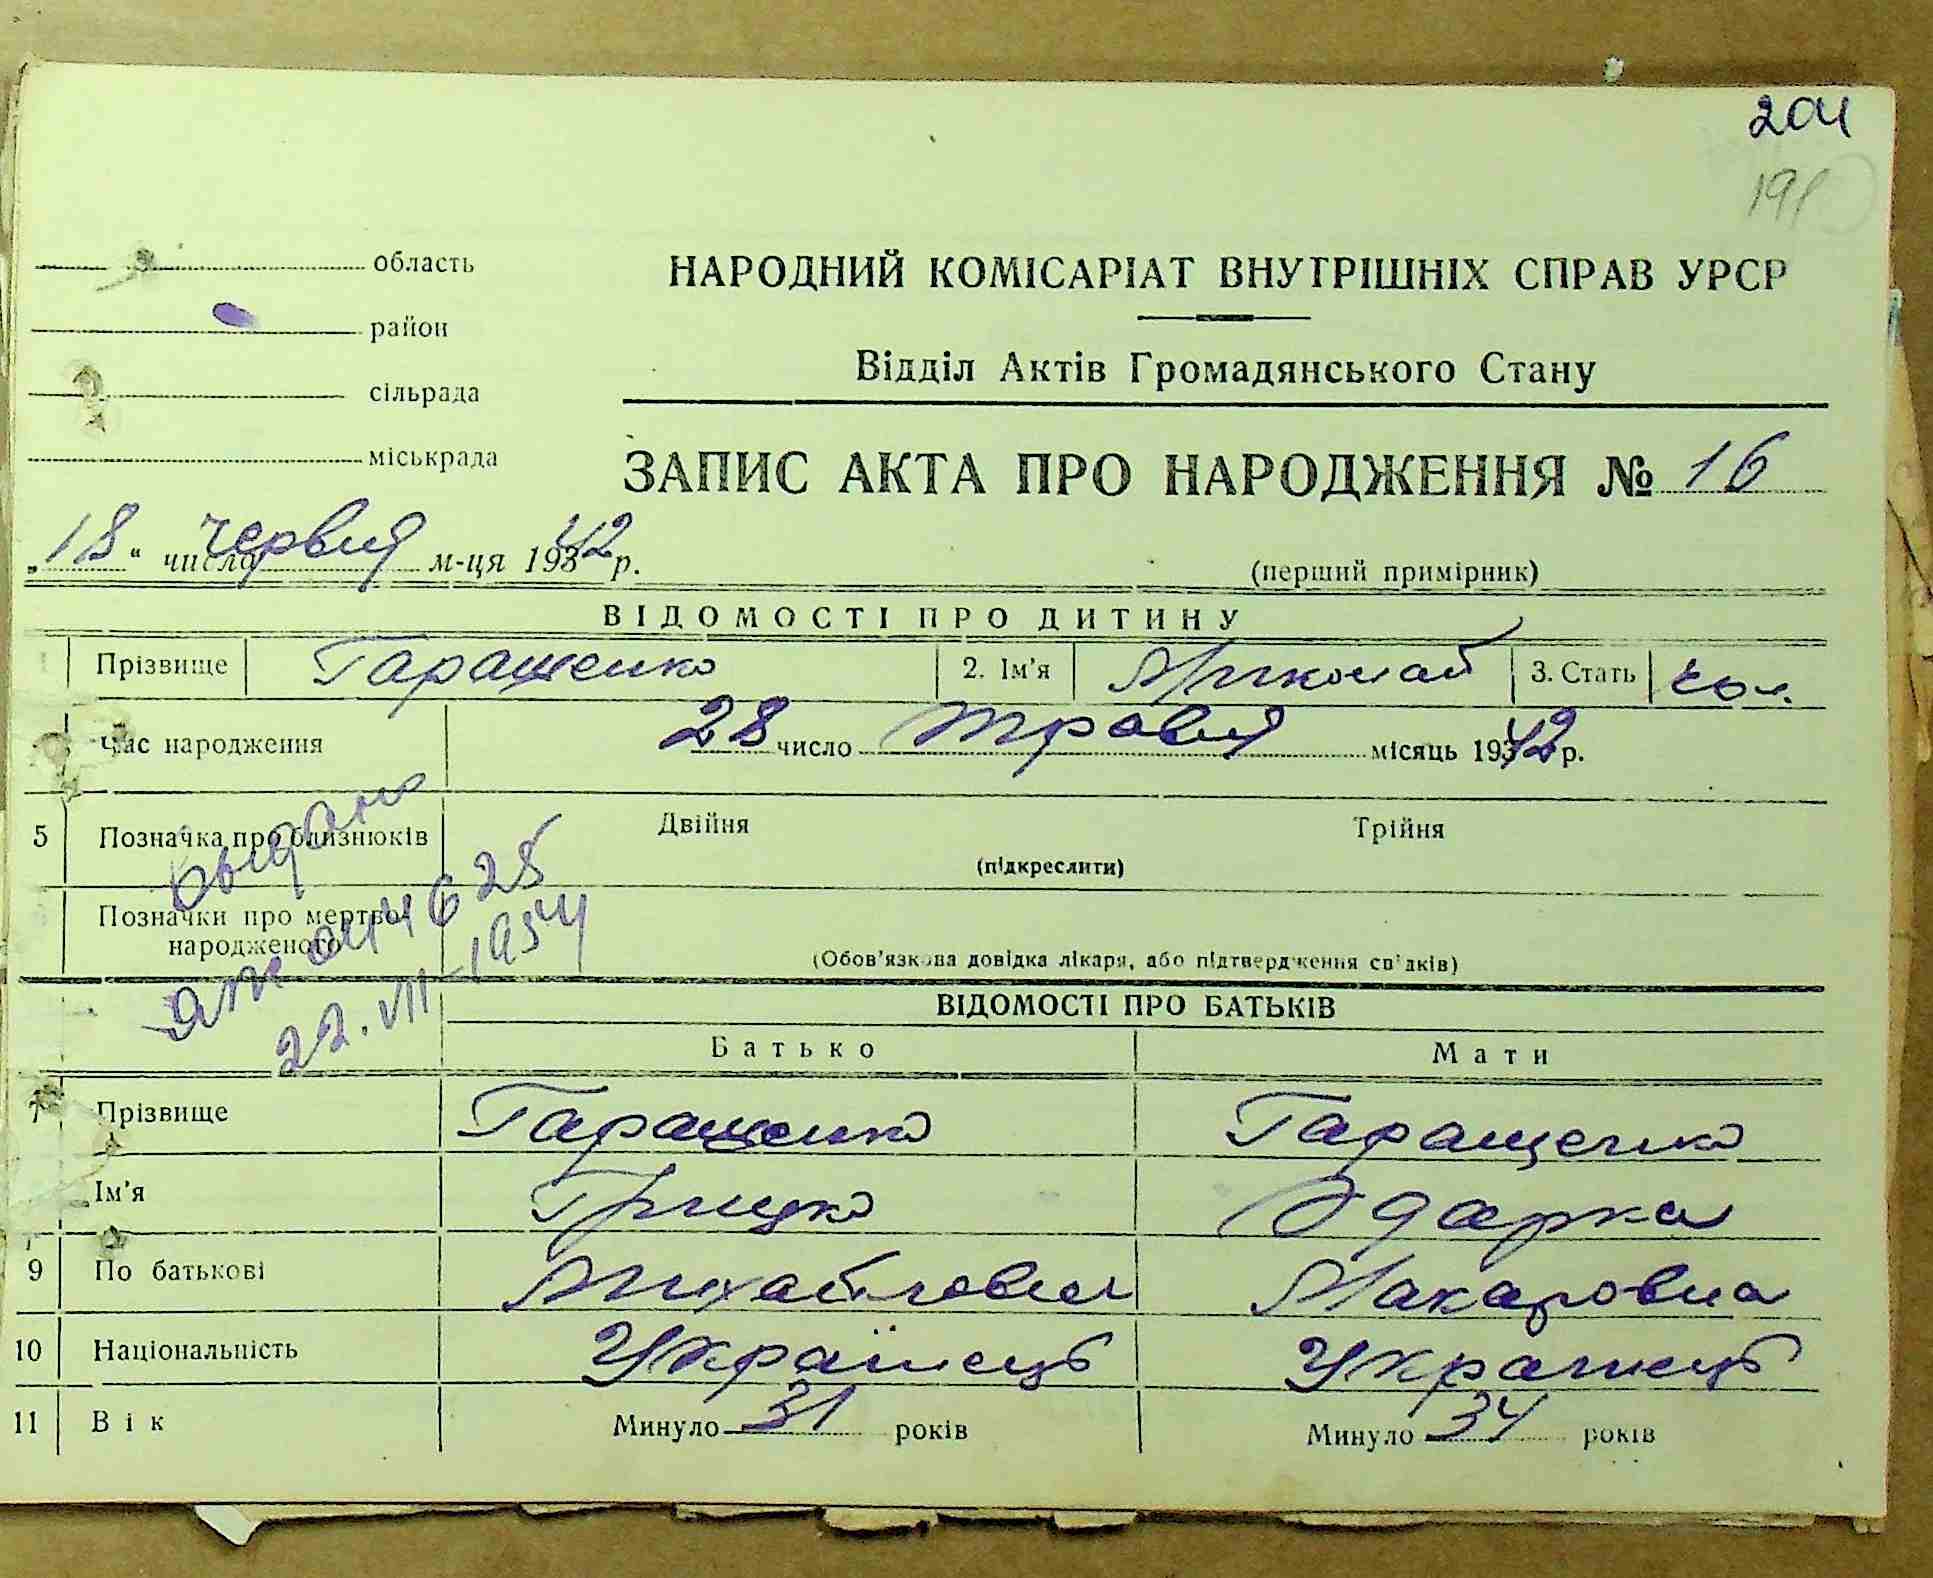 204
191
область
район
сільрада
міськрада
НАРОДНИЙ КОМІСАРІАТ ВНУТРІШНІХ СПРАВ УРСР
Відділ Актів Громадянського Стану
ЗАПИС АКТА ПРО НАРОДЖЕННЯ № 16
„18“ числа червня м-ця 1942 р.
(перший примірник)
ВІДОМОСТІ ПРО ДИТИНУ
Прізвище Гаращенко 2. Ім'я Миколай 3. Стать чол.
Час народження 28 число травня місяць 1942 р.
5 Позначка про близнюків Двійня Трійня
(підкреслити)
Позначки про мертво-
народженого
(Обов'язкова довідка лікаря, або підтвердження свідків)
Выдано
044625
22.VIII-1954
ВІДОМОСТІ ПРО БАТЬКІВ
Батько Мати
7 Прізвище Гаращенко Гаращенко
Ім'я Грицко Одарка
9 По батькові Михайлович Макаровна
10 Національність Українець Украинець
11 Вік Минуло 31 років Минуло 34 років